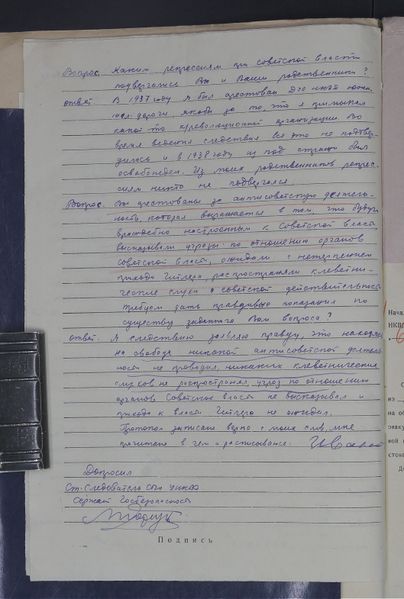 Вопрос. Каким репрессиям при советской власти
подвергались Вы и Ваши родственники?
ответ В 1937 году я был арестован
дороги, якобы за то, что я примыкал
к какой то к-революционной организации. Во
время ведения следствия все это не подтвер-
дилось и в 1938 году из под стражи был
освобожден. Из моих родственников репрес-
сиям никто не подвергался.
Вопрос. Вы арестованы за антисоветскую деятель-
ность, которая выражается в том, что будучи
враждебно настроенным к Советской власти
высказывали угрозы по отношению органов
советской власти, ожидали с нетерпением
прихода Гитлера, распространяли клеветни-
ческие слухи о советской действительности
требуем дать правдивые показания по
существу заданного Вам вопроса?
ответ. Я следствию заявляю правду, что находясь
на свободе никакой антисоветской деятель-
ности не проводил, никаких клеветнических
слухов не распространял, угроз по отношению
органов Советской власти не высказывал и
прихода к власти Гитлера не ожидал.
Протокол записан верно с моих слов, мне
прочитан в чем и расписываюсь.
Допросил
Ст. Следователь
Сержант Госбезопасности
Подпись
Нача
НКВД
из
на об